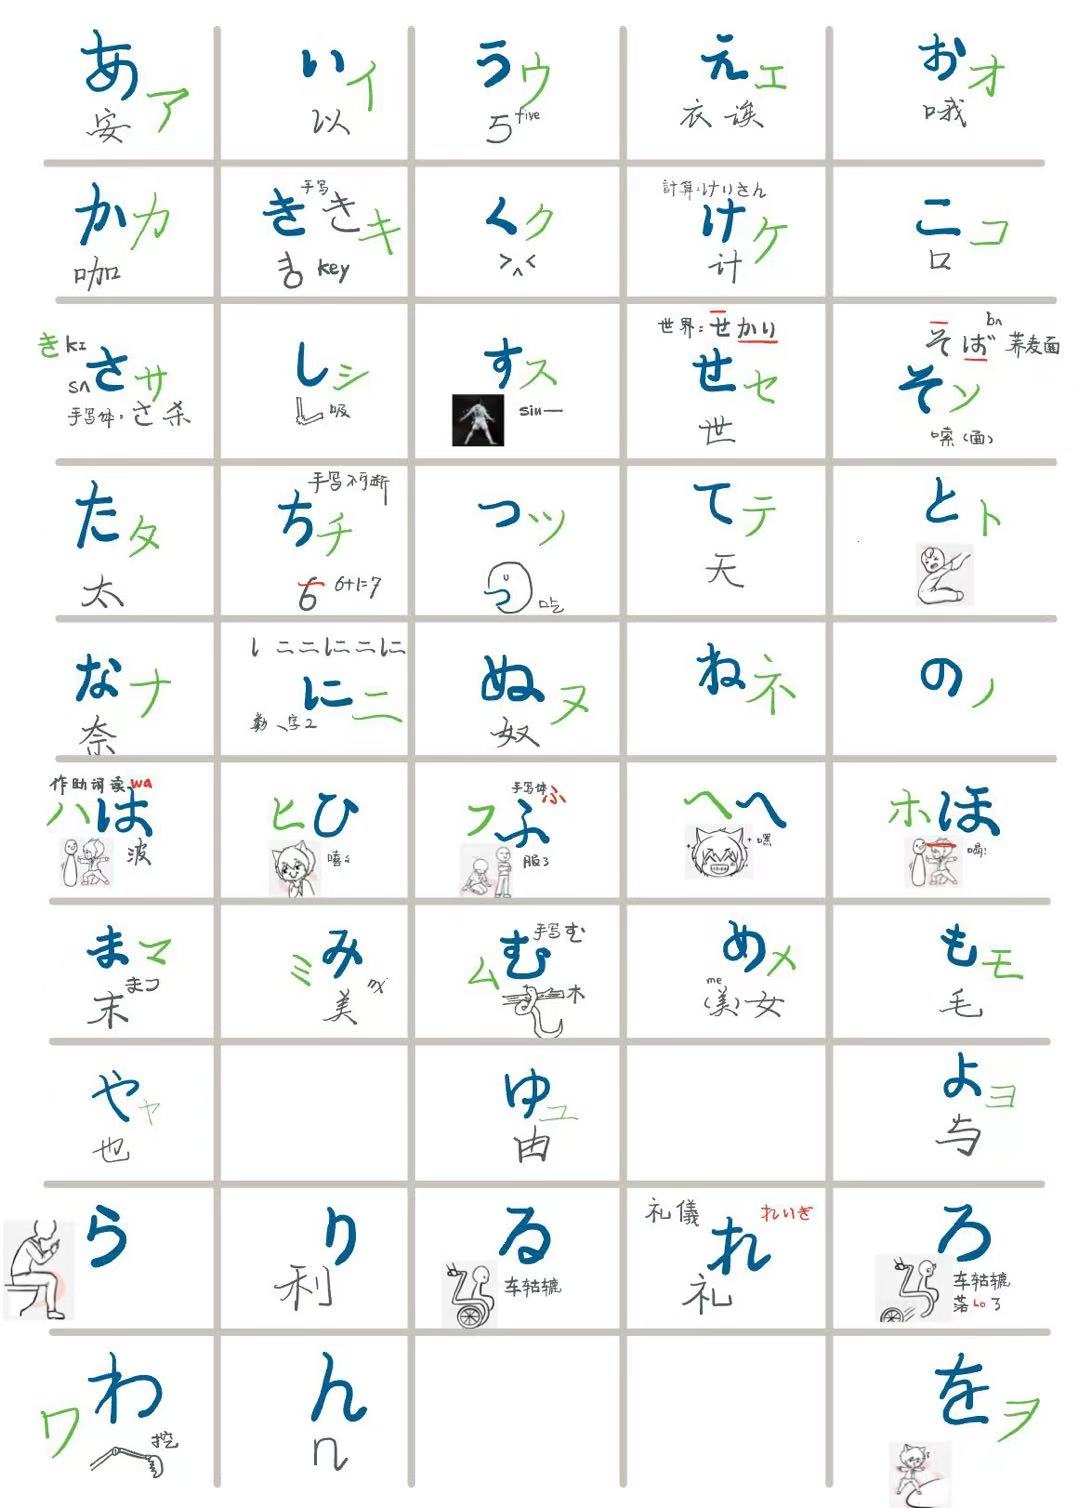 あ ア
安
い イ
以
う ウ
5 five
え エ
衣 诶
お オ
哦
か カ
咖
手写
き き キ
key
く ク
>^<
計算:けいさん
け ケ
计
こ コ
口
き kɪ
sʌ さ サ
手写体:さ 杀
し シ
吸
す ス
siu一
世界:せかい
せ セ
世
bʌ
そば 荞麦面
そ ソ
嗦(面)
た タ
太
手写不可断
ち チ
6 6+1=7
つ ツ
て テ
天
と ト
な ナ
奈
l 二 二 に 二 に
に ニ
数字2
ぬ ヌ
奴
ね ネ
の ノ
作助词读wa
ハ は
波
ヒ ひ
嘻
手写体ふ
フ ふ
服了
ヘ へ
嘿
ホ ほ
喝
ま マ
末 まつ
ミ み
美
手写む
ム む
木
め メ
me
(美)女
も モ
毛
や ヤ
也
ゆ ユ
由
よ ヨ
与
ら
り
利
る
车轱辘
礼儀 れいぎ
れ
礼
ろ
车轱辘
落Lo了
わ
ワ
挖
ん
n
を ヲ